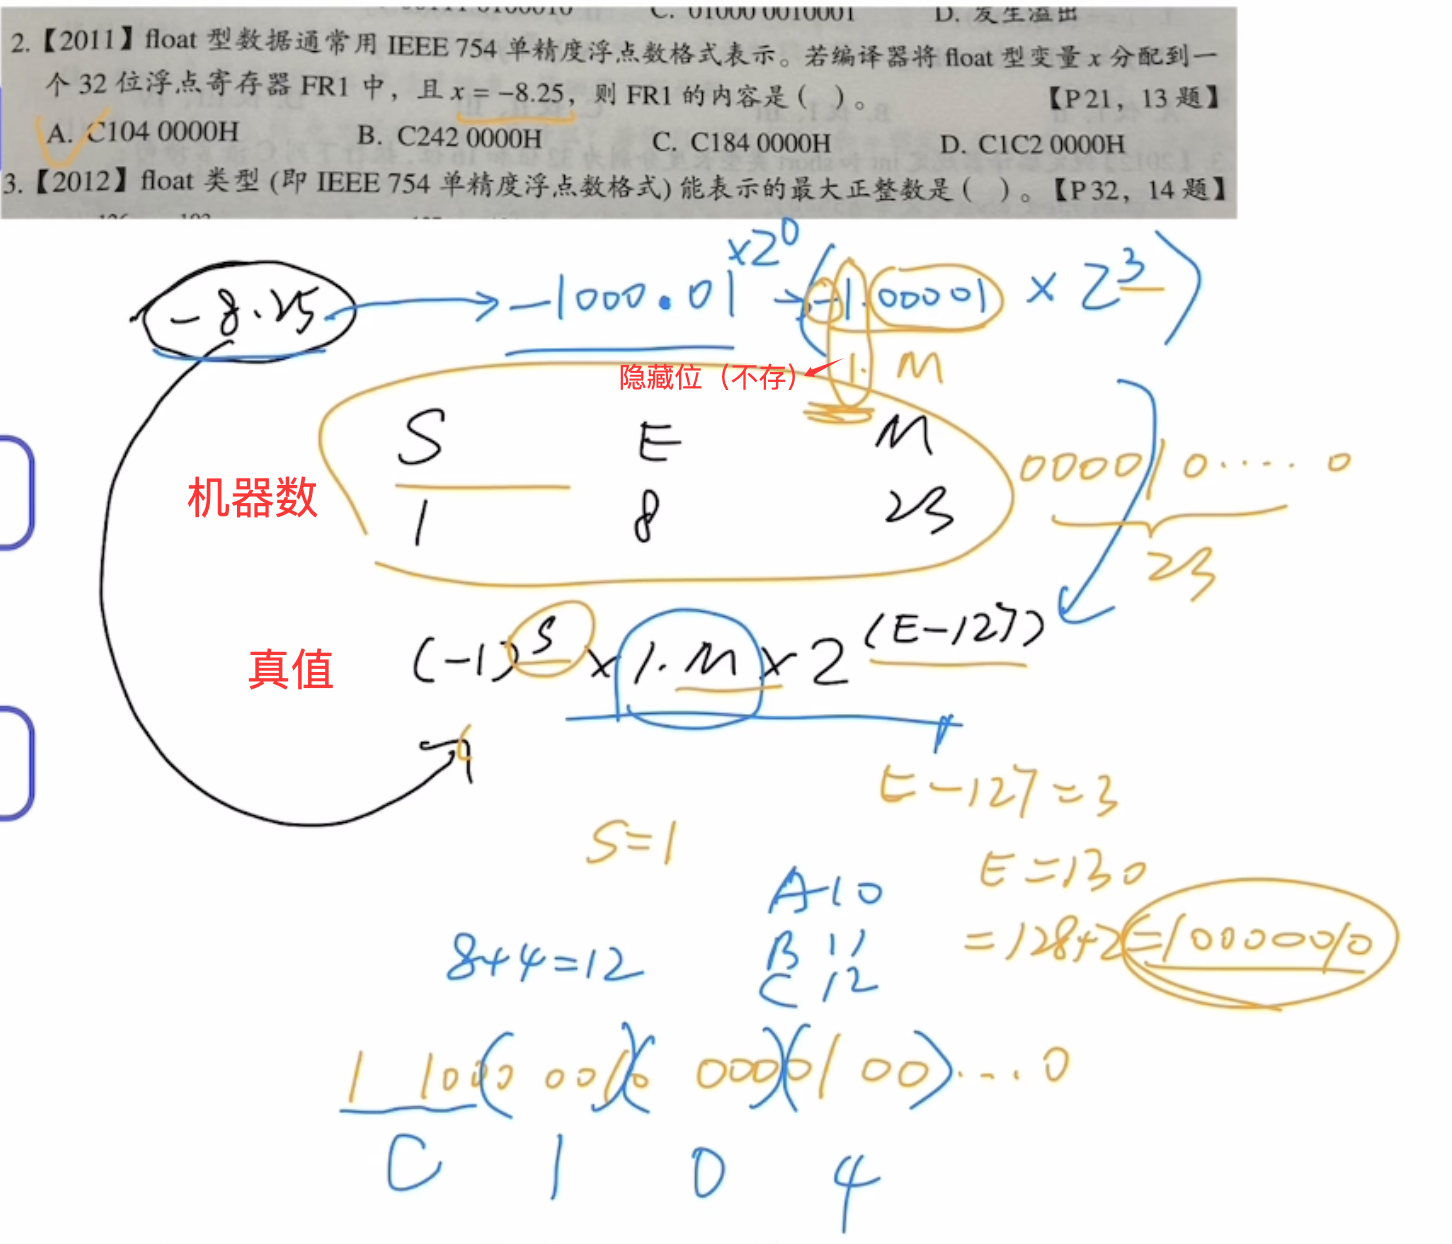 C. 01000 0010001 D. 发生溢出
2.【2011】float 型数据通常用 IEEE 754 单精度浮点数格式表示。若编译器将 float 型变量 x 分配到一
个 32 位浮点寄存器 FR1 中，且 x = −8.25，则 FR1 的内容是（ ）。 【P21，13 题】
A. C104 0000H B. C242 0000H C. C184 0000H D. C1C2 0000H
3.【2012】float 类型 (即 IEEE 754 单精度浮点数格式) 能表示的最大正整数是（ ）。【P32，14 题】
-8.25 → -1000.01 ×2^0 → (-1.00001 × 2^3)
隐藏位（不存） 1. M
S E M
000010.....0
机器数
1 8 23
23
真值 (-1)^S × 1.M × 2^(E-127)
E-127=3
S=1
E=130
A 10
=128+2=10000010
8+4=12
B 11
C 12
1 1000 0010 00001 00 ....0
C 1 0 4